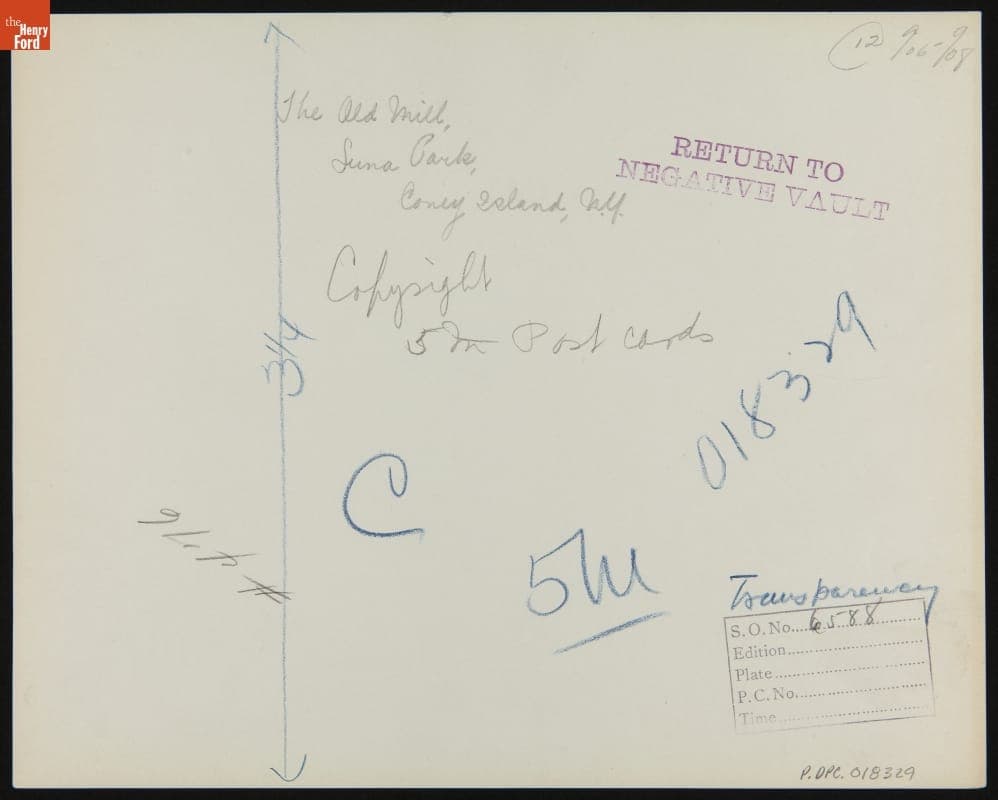 the
Henry
Ford
12 906-908
The Old Mill,
Luna Park,
Coney Island, N.Y.
RETURN TO
NEGATIVE VAULT
Copyright
5M Post cards
3 1/4
018329
C
5M
Transparency
S.O. No. 6588
Edition
Plate
P.C. No.
Time
P.DPC. 018329